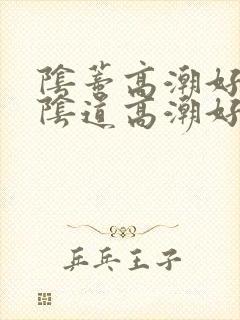 陰蒂高潮好
陰道高潮好
乒乓王子